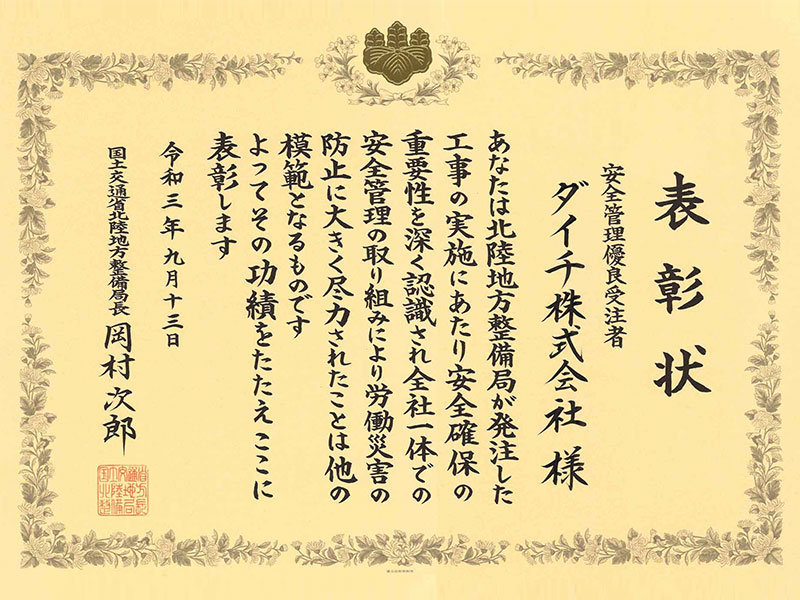 表彰状
安全管理優良受注者
ダイチ株式会社 様
あなたは北陸地方整備局が発注した
工事の実施にあたり安全確保の
重要性を深く認識され全社一体での
安全管理の取り組みにより労働災害の
防止に大きく尽力されたことは他の
模範となるものです
よってその功績をたたえここに
表彰します
令和三年九月十三日
国土交通省北陸地方整備局長 岡村次郎